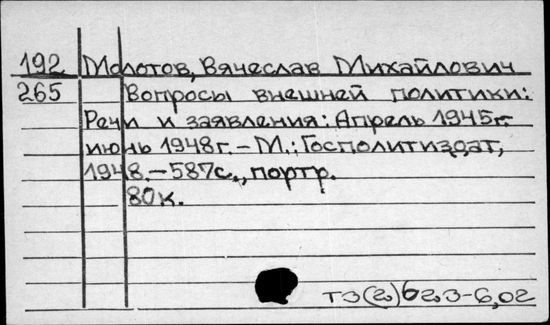 192 Молотов, Вячеслав Михайлович
265 Вопросы внешней политики:
Речи и заявления: Апрель 1945г.
июнь 1948г. – М.: Госполитиздат,
1948. – 587с., портр.
80к.
тз(2)623-6,02